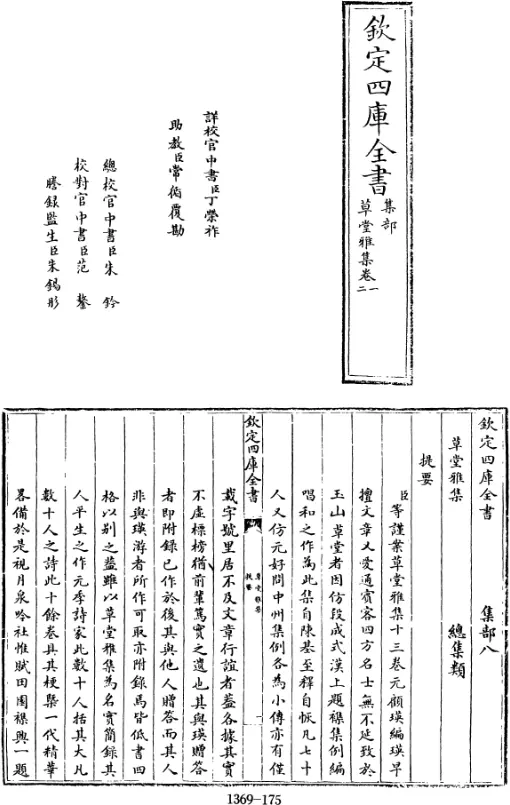 欽定四庫全書
集部
草堂雅集卷一
二
詳校官中書臣丁榮祚
助教臣常循覆勘
總校官中書臣朱鈐
校對官中書臣范鏊
謄錄監生臣朱錫彤
欽定四庫全書 集部八
草堂雅集 總集類
提要
臣等謹案草堂雅集十三卷元顧瑛編瑛早
擅文章又愛通賓客四方名士無不延致於
玉山草堂者因仿段成式漢上題襟集例編
唱和之作為此集自陳基至釋自恢凡七十
人又仿元好問中州集例各為小傳亦有僅
欽定四庫全書
草堂雅集
提要
一
載字號里居不及文章行誼者蓋各據其實
不虛標榜猶前輩篤實之遺也其與瑛贈答
者即附録己作於後其與他人贈答而其人
非與瑛游者所作可取亦附録焉皆低書四
格以别之蓋雖以草堂雅集為名實簡録其
人平生之作元季詩家此數十人括其大凡
數十人之詩此十餘卷具其梗槩一代精華
畧備於是視月泉吟社惟賦田園襍興一題
1369-175